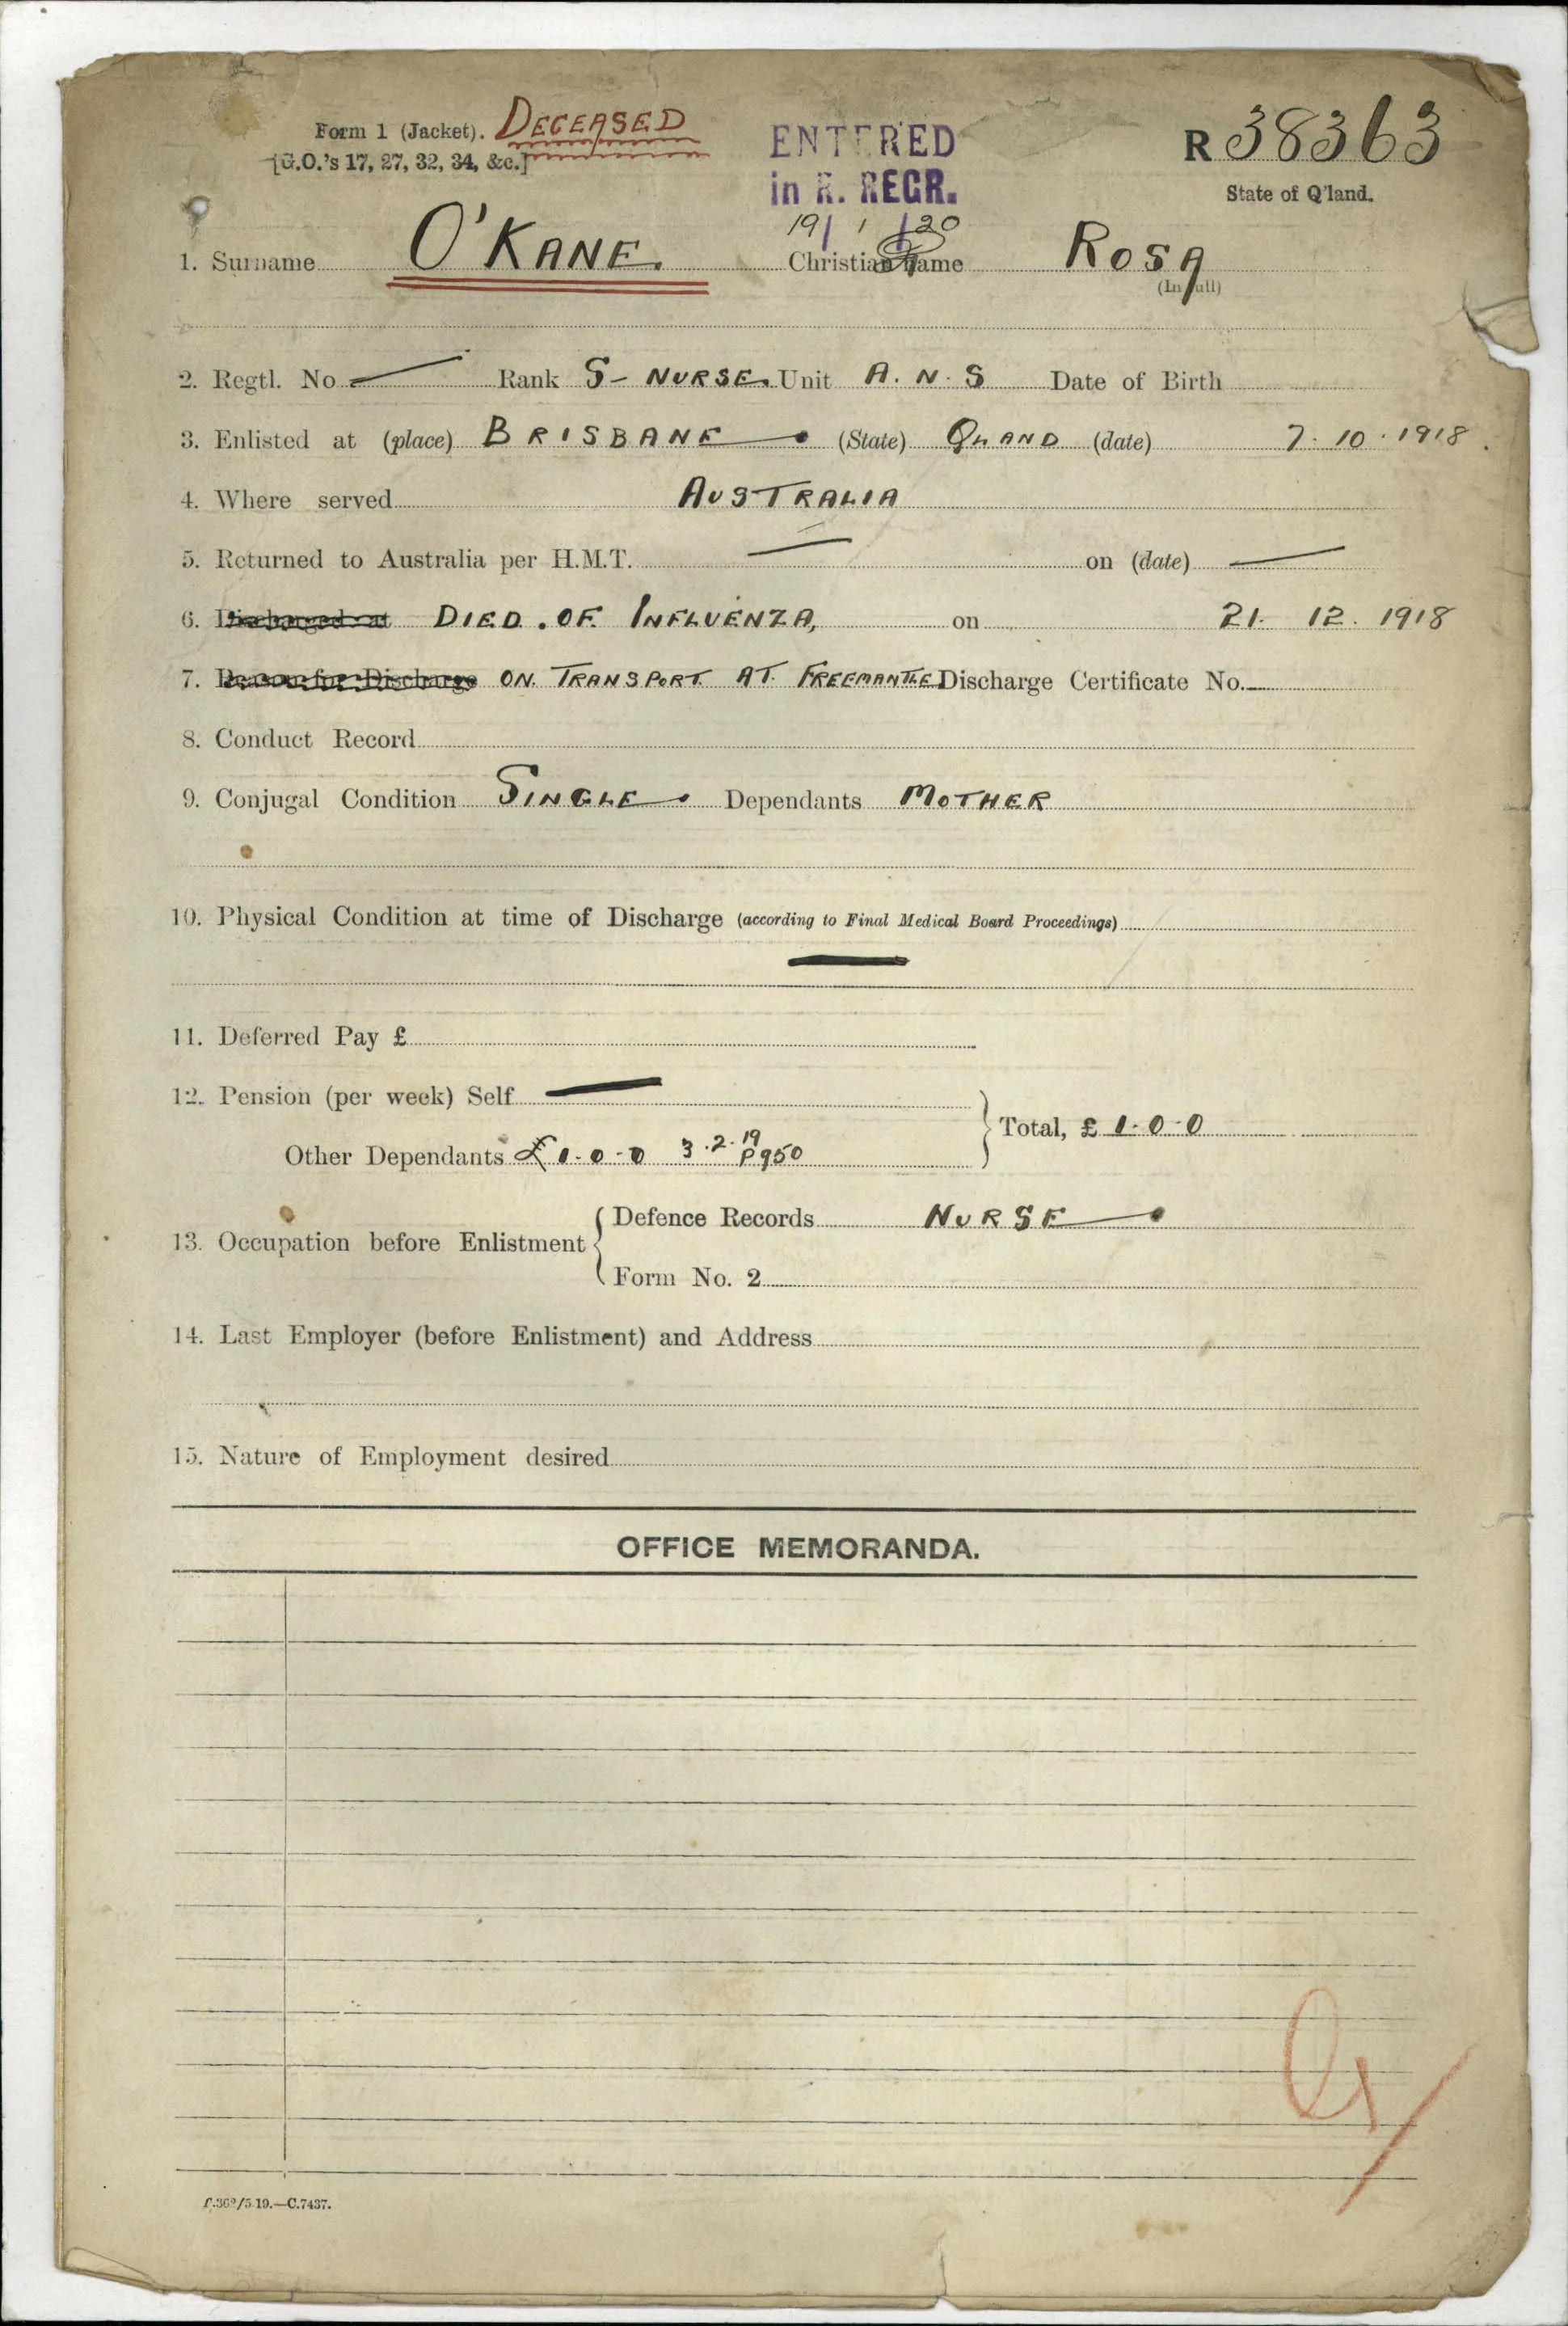 Form 1 (Jacket). DECEASED
[G.O.'s 17, 27, 32, 34, &c.]
ENTERED
in R. REGR.
19/1/20
R 38363
State of Q'land.
1. Surname O'KANE. Christian Name ROSA
(In full)
2. Regtl. No — Rank S- NURSE. Unit A. N. S Date of Birth
3. Enlisted at (place) BRISBANE (State) QLAND (date) 7. 10. 1918.
4. Where served AUSTRALIA
5. Returned to Australia per H.M.T. — on (date) —
6. Discharged at DIED. OF. INFLUENZA, on 21. 12. 1918
7. Reason for Discharge ON. TRANSPORT. AT. FREEMANTLE Discharge Certificate No.
8. Conduct Record
9. Conjugal Condition SINGLE. Dependants MOTHER
10. Physical Condition at time of Discharge (according to Final Medical Board Proceedings)
—
11. Deferred Pay £
12. Pension (per week) Self —
Other Dependants £1.0.0 3.2.19 P950
Total, £ 1.0.0
13. Occupation before Enlistment
Defence Records NURSE
Form No. 2
14. Last Employer (before Enlistment) and Address
15. Nature of Employment desired
OFFICE MEMORANDA.
C.7437.